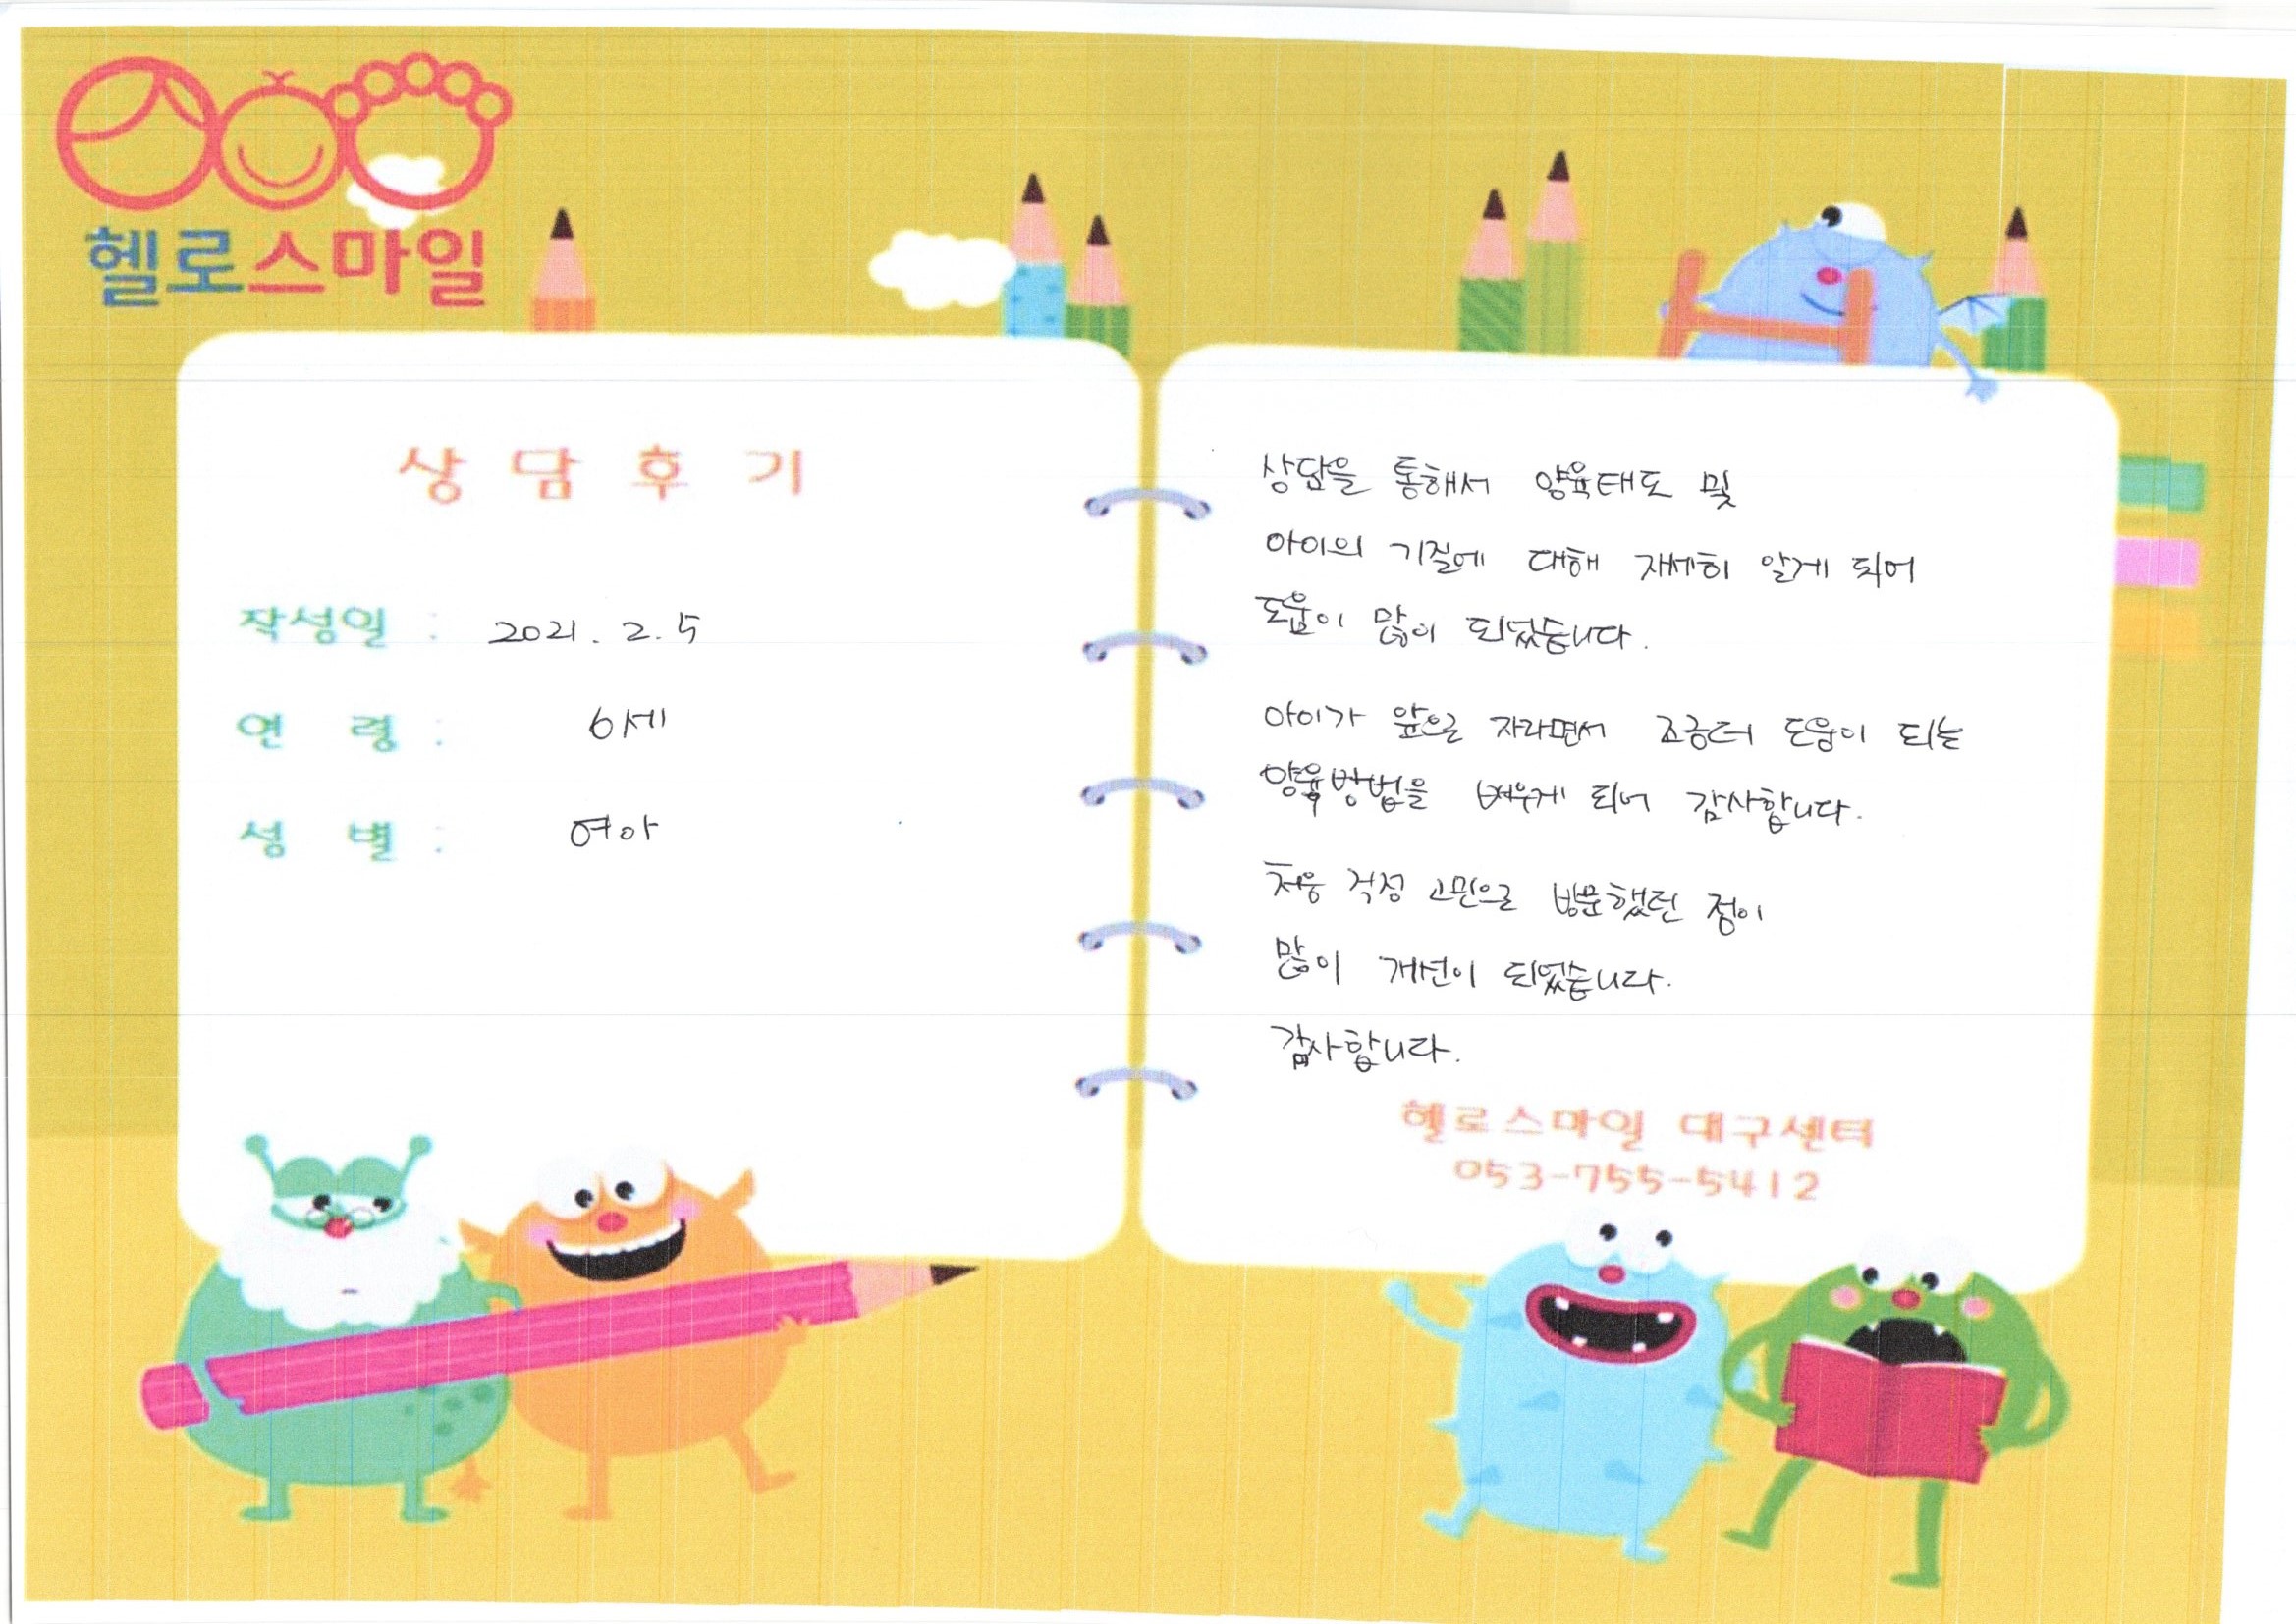 헬로스마일
상 담 후 기
작성일 : 2021. 2. 5
연 령 : 6세
성 별 : 여아
상담을 통해서 양육태도 및
아이의 기질에 대해 자세히 알게 되어
도움이 많이 되었습니다.
아이가 앞으로 자라면서 조금더 도움이 되는
양육방법을 배우게 되어 감사합니다.
처음 걱정 고민으로 방문했던 점이
많이 개선이 되었습니다.
감사합니다.
헬로스마일 대구센터
053-755-5412